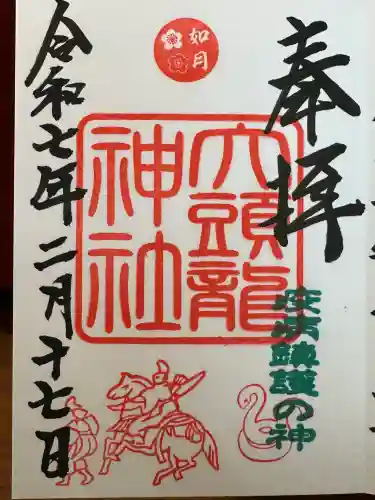 如月
奉拝
疫病鎮護の神
大頭龍
神社
令和七年二月十七日